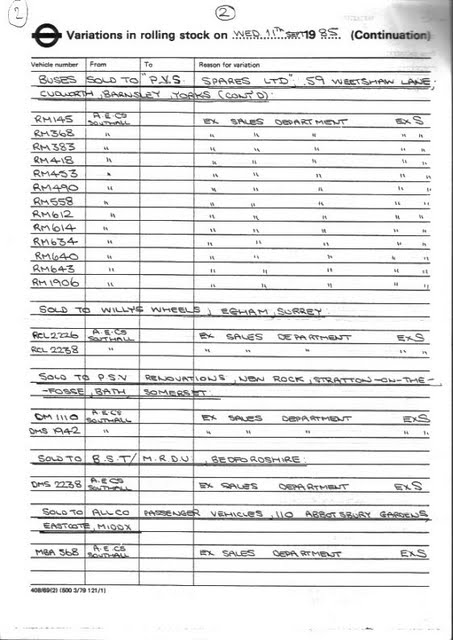 2
2
Variations in rolling stock on WED 11TH SEPT 1985 (Continuation)
Vehicle number From To Reason for variation
BUSES SOLD TO "P.V.S. SPARES LTD", 59 WEETSHAW LANE,
CUDWORTH, BARNSLEY, YORKS (CONT'D):
RM145 A.E.C'S SOUTHALL EX SALES DEPARTMENT EXS
RM368 " " " " " "
RM383 " " " " " "
RM418 " " " " " "
RM453 " " " " " "
RM490 " " " " " "
RM558 " " " " " "
RM612 " " " " " "
RM614 " " " " " "
RM634 " " " " " "
RM640 " " " " " "
RM643 " " " " " "
RM1906 " " " " " "
SOLD TO WILLYS WHEELS, EGHAM, SURREY:
RCL2226 A.E.C'S SOUTHALL EX SALES DEPARTMENT EXS
RCL2238 " " " " " "
SOLD TO P.S.V RENOVATIONS, NEW ROCK, STRATTON-ON-THE-
-FOSSE, BATH, SOMERSET:
DM1110 A.E.C'S SOUTHALL EX SALES DEPARTMENT EXS
DMS1942 " " " " " "
SOLD TO B.S.T/M.R.D.U, BEDFORDSHIRE:
DMS2238 A.E.C'S SOUTHALL EX SALES DEPARTMENT EXS
SOLD TO ALLCO PASSENGER VEHICLES, 110 ABBOTSBURY GARDENS,
EASTCOTE, MIDDX
MBA568 A.E.C'S SOUTHALL EX SALES DEPARTMENT EXS
408/69(2) (500 3/79 121/1)